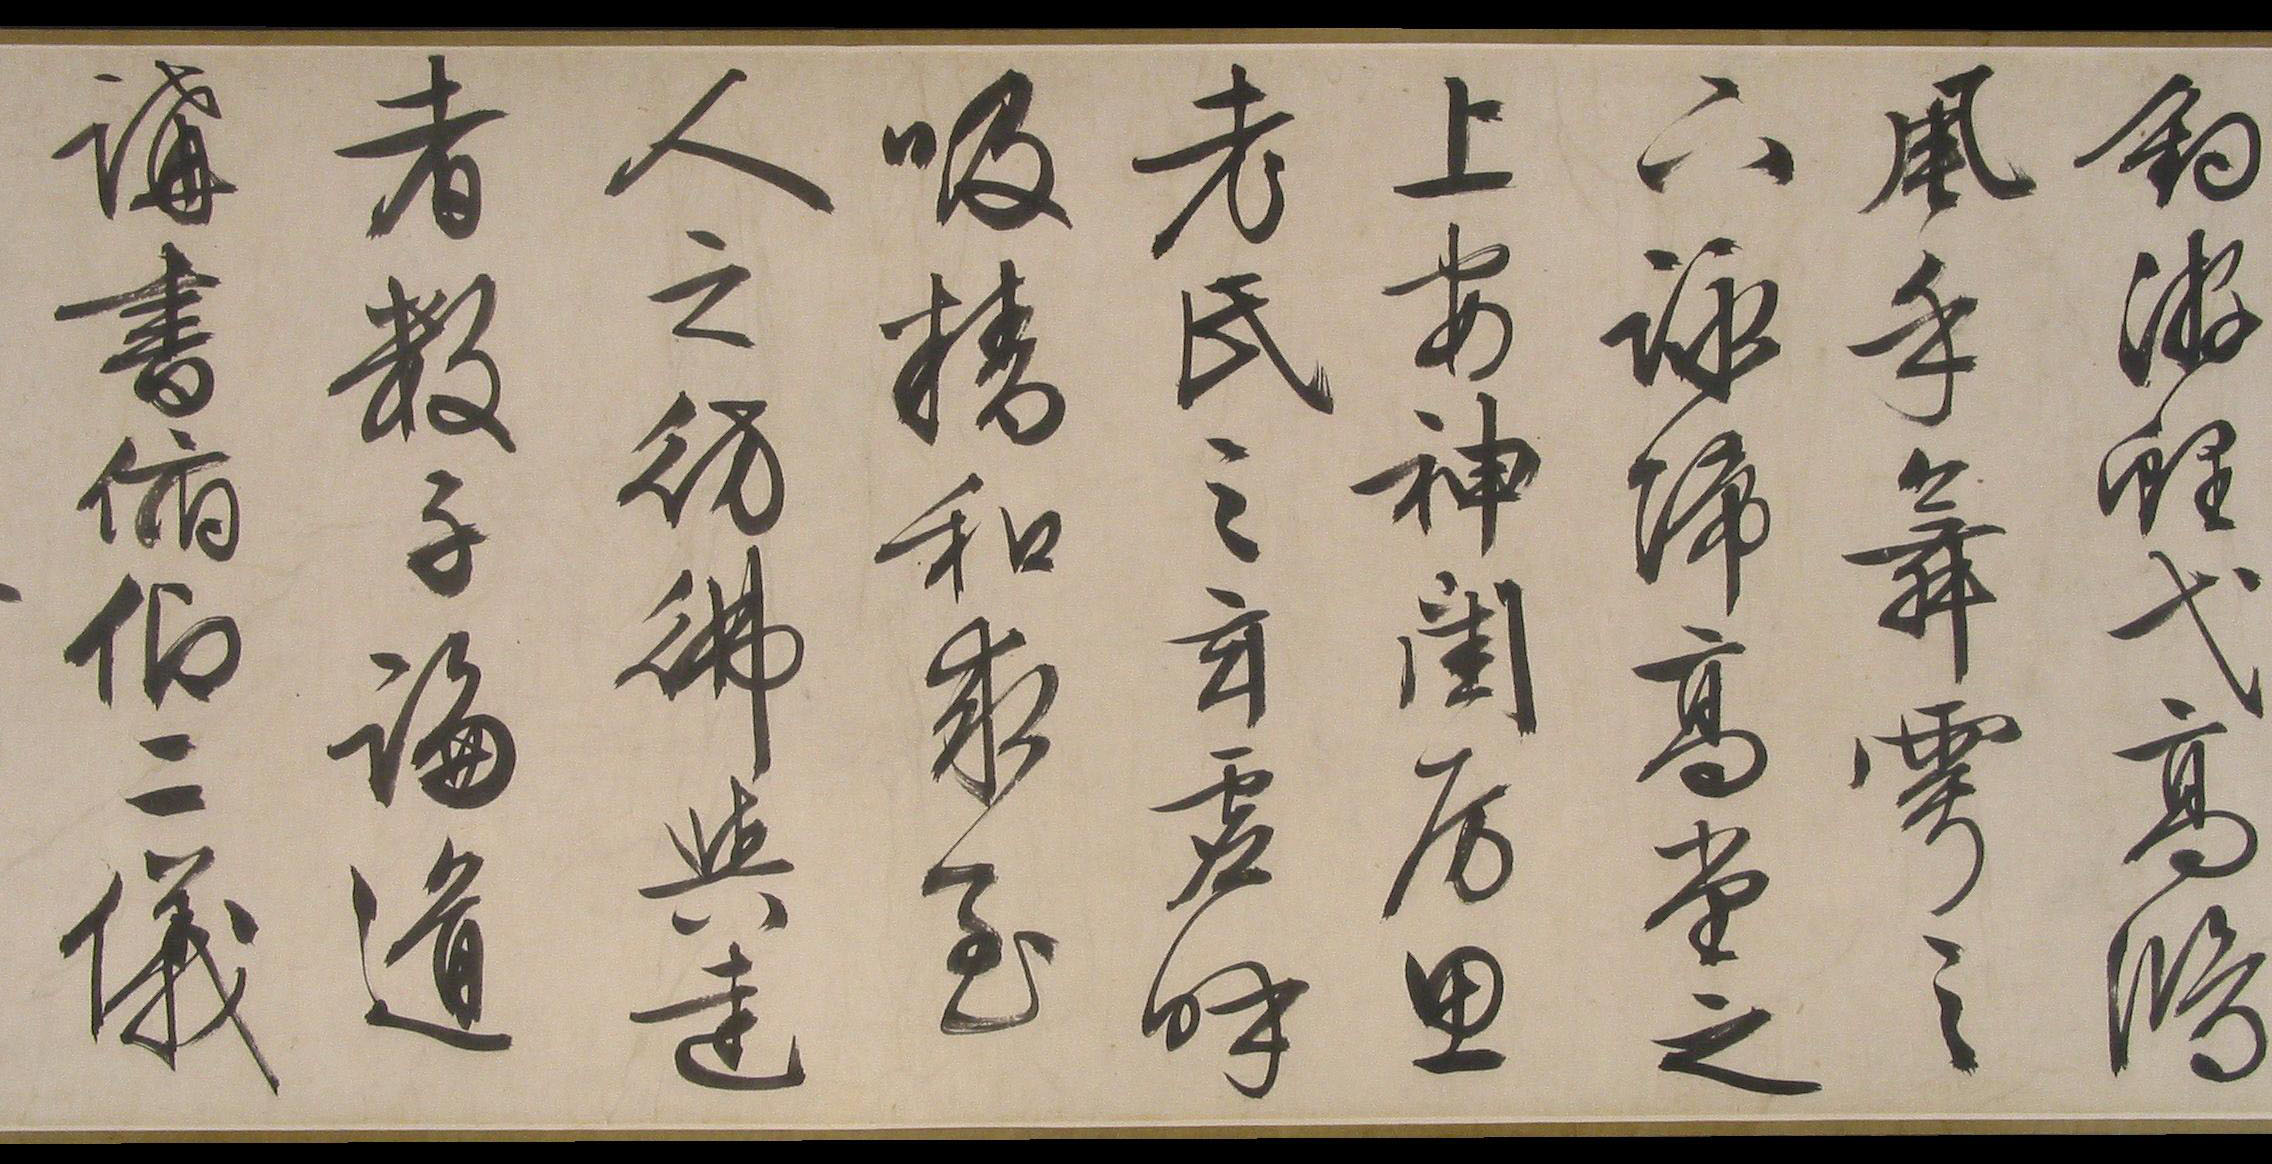 釣游鯉弋高鴻
風乎舞雩之
下詠歸高堂之
上安神閨房思
老氏之玄虛呼
吸精和求至
人之彷彿與達
者數子論道
講書俯仰二儀